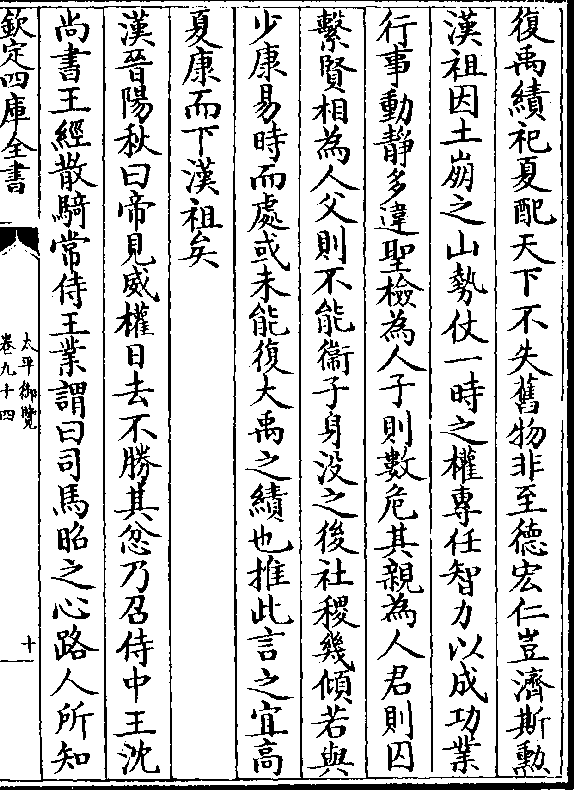 復禹績祀夏配天下不失舊物非至德宏仁豈濟斯勳
漢祖因土崩之山勢仗一時之權專任智力以成功業
行事動靜多違聖檢為人子則數危其親為人君則囚
繫賢相為人父則不能衞子身没之後社稷幾傾若與
少康易時而處或未能復大禹之績也推此言之宜高
夏康而下漢祖矣
漢晉陽秋曰帝見威權日去不勝其忿乃召侍中王沈
尚書王經散騎常侍王業謂曰司馬昭之心路人所知
欽定四庫全書
太平御覽
卷九十四
十